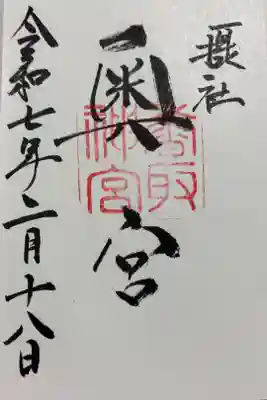 攝社
奥宮
香取
神宮
令和七年二月十八日